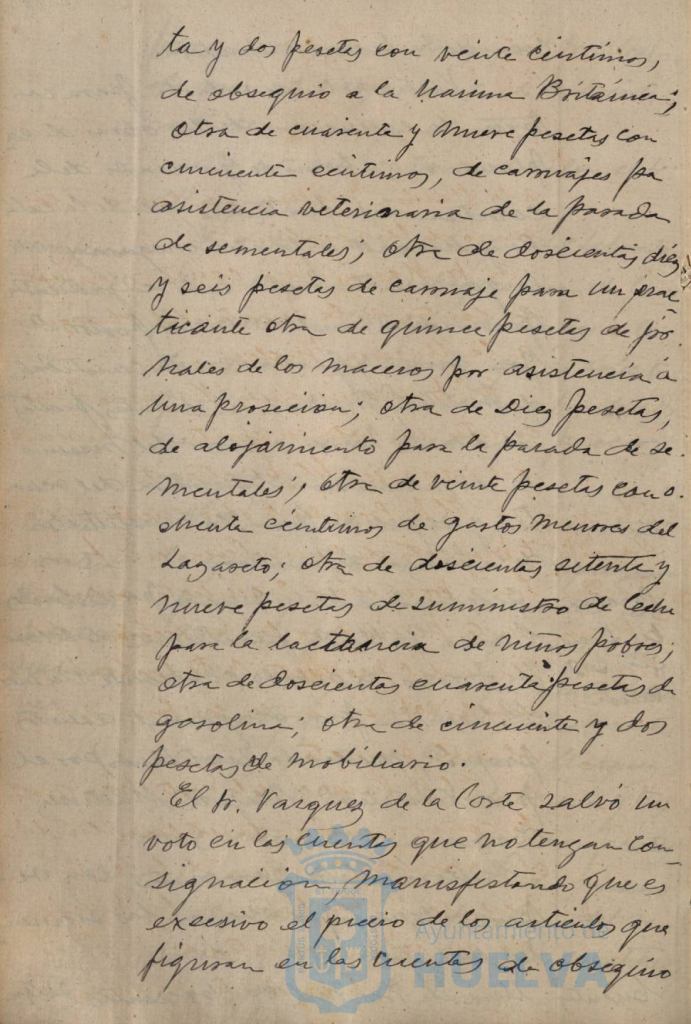 ta y dos pesetas con veinte centimos,
de obsequio a la Marina Británica;
otra de cuarenta y nueve pesetas con
cincuenta centimos, de carruajes pa
asistencia veterinaria de la parada
de sementales; otra de doscientas diez
y seis pesetas de carruaje para un prac-
ticante otra de quince pesetas de jor
nales de los maceros por asistencia a
una prosecion; otra de Diez pesetas,
de alojamiento para la parada de se-
mentales; otra de veinte pesetas con o-
chenta centimos de gastos menores del
Lazareto; otra de doscientas setenta y
nueve pesetas de suministro de leche
para la lactancia de niños pobres;
otra de doscientas cuarenta pesetas de
gasolina; otra de cincuenta y dos
pesetas de mobiliario.
El Sr. Vazquez de la Corte salvó su
voto en las cuentas que no tengan con-
signación, manisfestando que es
excesivo el precio de los articulos que
figuran en las cuentas de obsequio
Ayuntamiento de
HUELVA